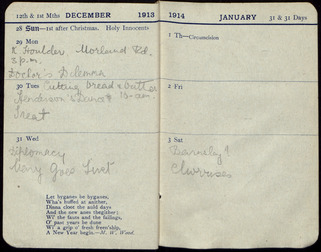 12th & 1st Mths DECEMBER 1913
28 Sun—1st after Christmas. Holy Innocents
29 Mon
K Houlder Morland Rd.
3 p.m.
Doctor's Dilemma
30 Tues Cutting Bread & Butter
Henderson's Dance 10-am
Treat
31 Wed
Diplomacy
Mary Goes First
Let byganes be byganes,
Wha's buffed at anither,
Dinna cloot the auld days
And the new anes thegither;
Wi' the fauts and the failings,
O' past years be dune
Wi' a grip o' freen'ship,
A New Year begin.—M. W. Wood.
1914 JANUARY 31 & 31 Days
1 Th—Circumcision
2 Fri
3 Sat
Barnsley